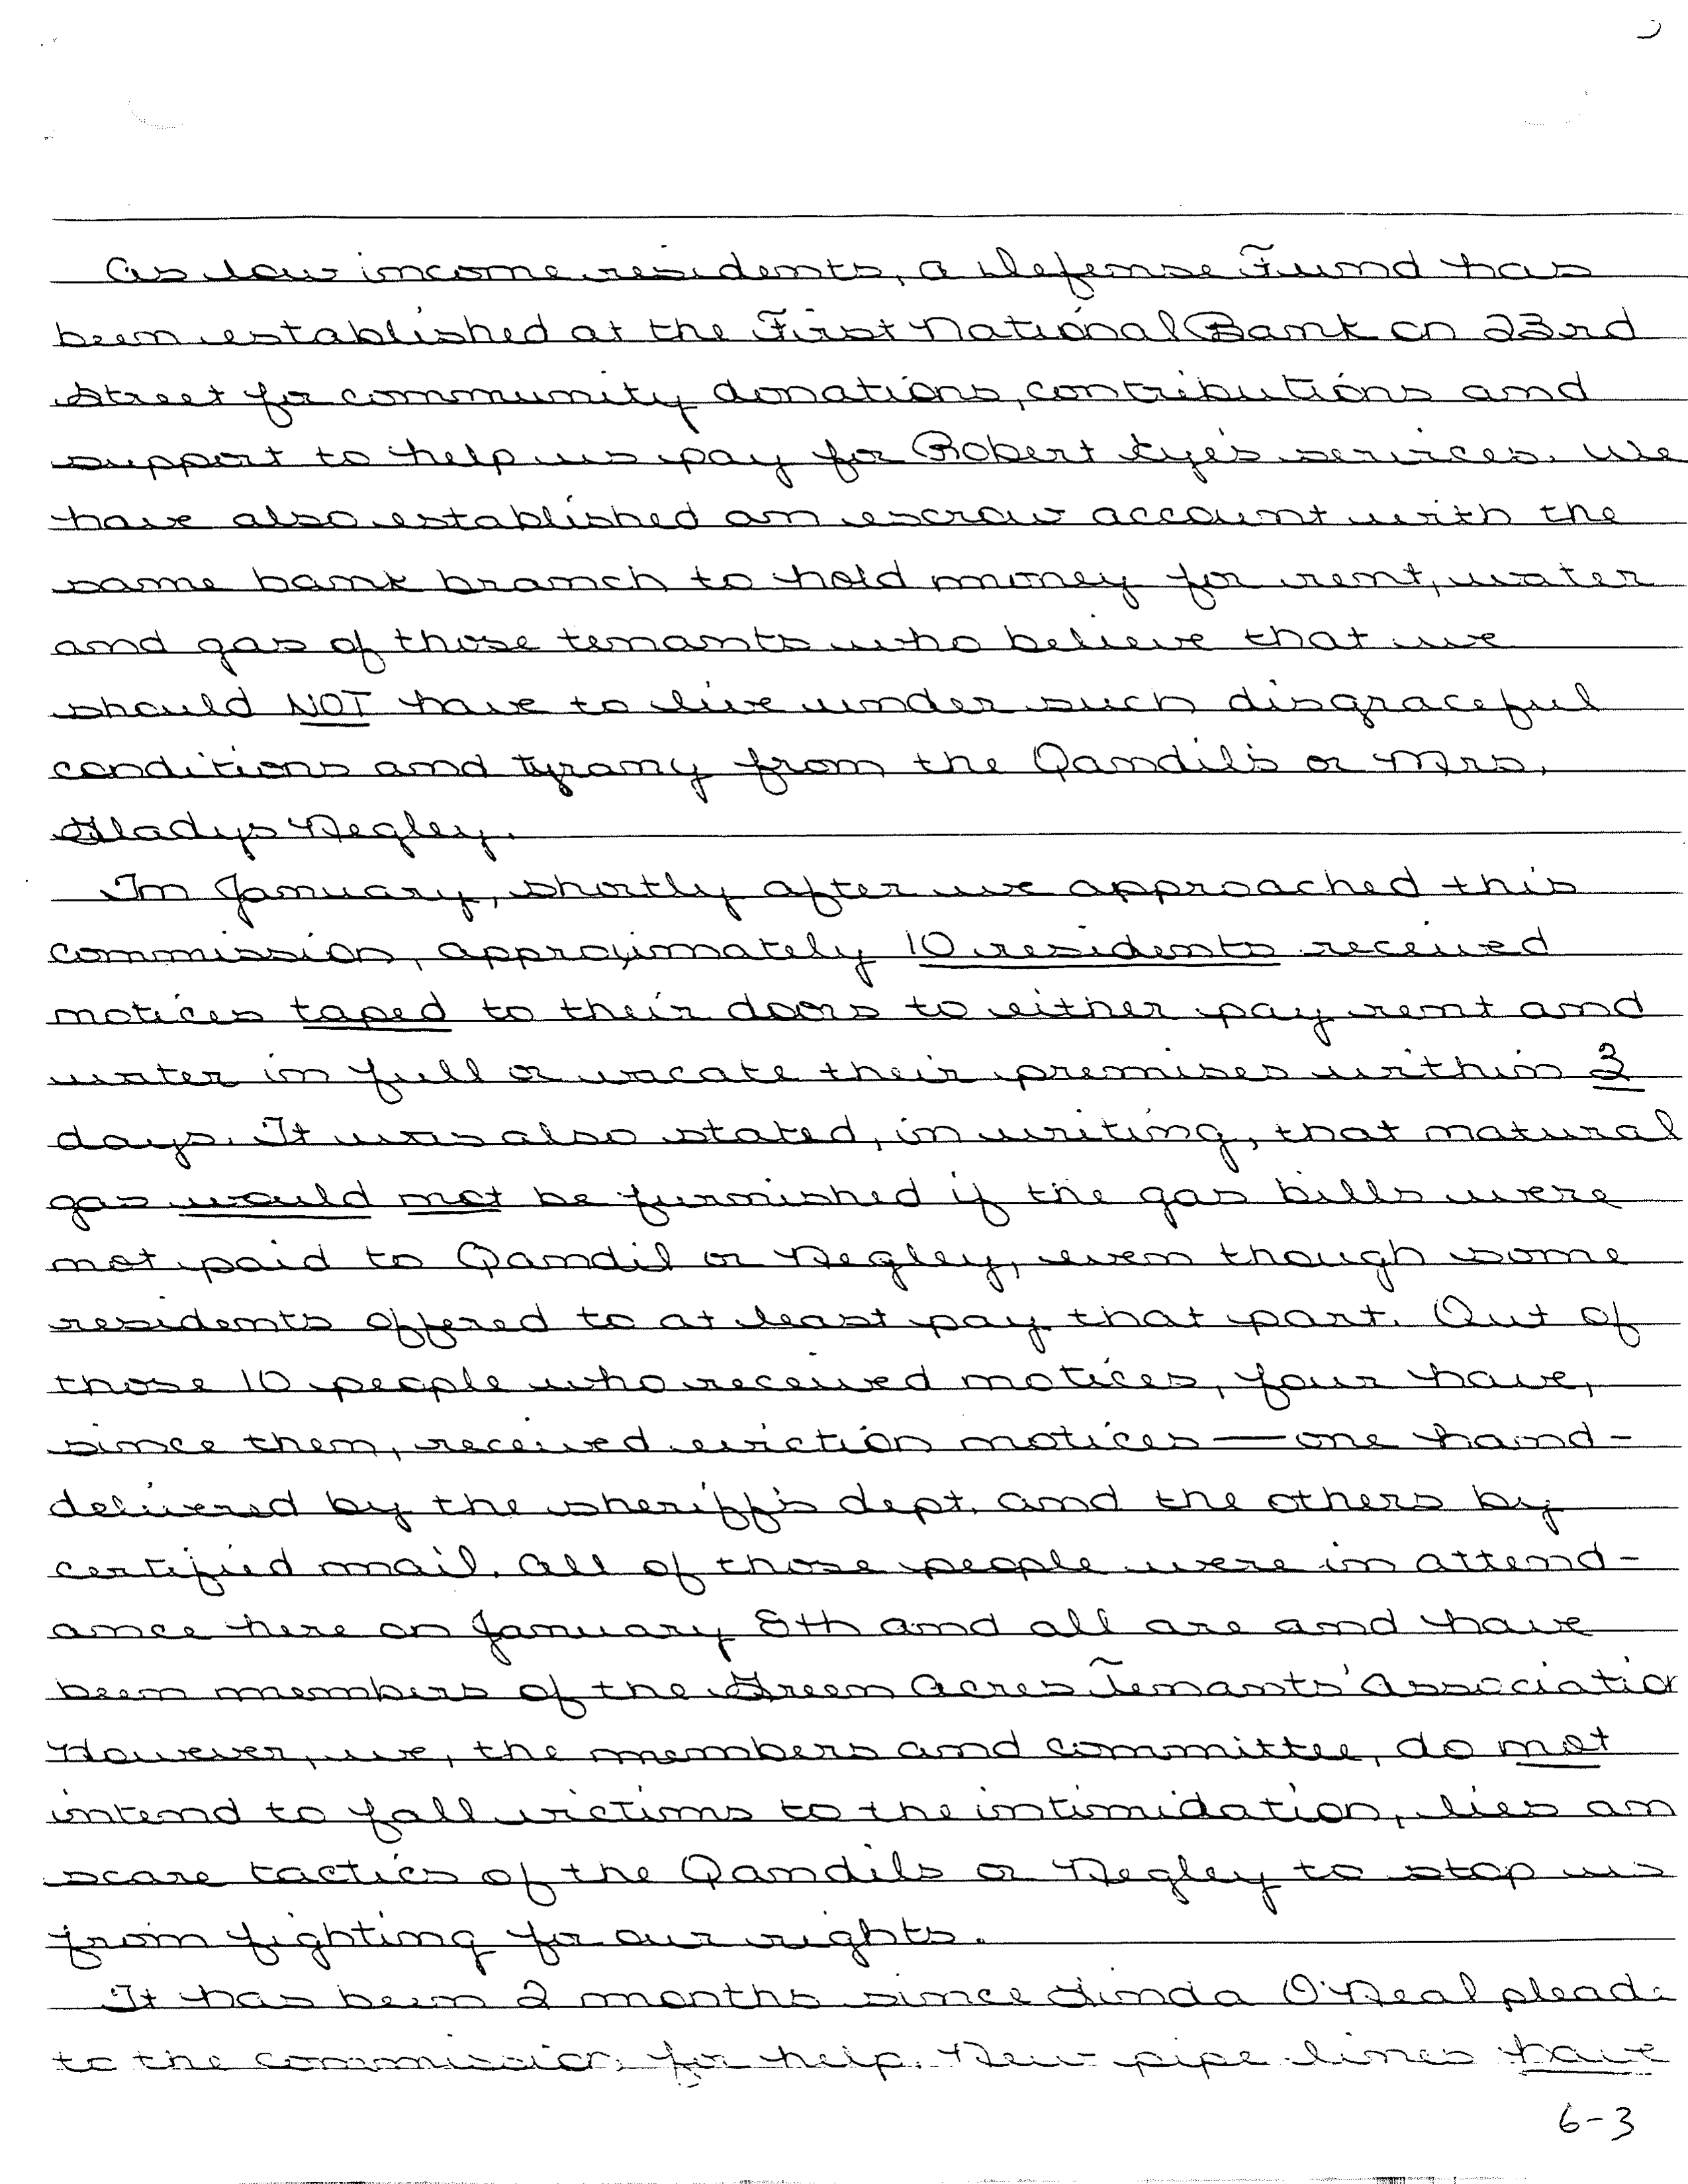 As low income residents, a Defense Fund has
been established at the First National Bank on 23rd
Street for community donations, contributions and
support to help us pay for Robert Eye's services. We
have also established an escrow account with the
same bank branch to hold money for rent, water
and gas of those tenants who believe that we
should NOT have to live under such disgraceful
conditions and tyrany from the Qandil's or Mrs.
Gladys Negley.
In January, shortly after we approached this
commission, approximately 10 residents received
notices taped to their doors to either pay rent and
water in full or vacate their premises within 3
days. It was also stated, in writing, that natural
gas would not be furnished if the gas bills were
not paid to Qandil or Negley, even though some
residents offered to at least pay that part. Out of
those 10 people who received notices, four have,
since then, received eviction notices — one hand-
delivered by the sheriff's dept. and the others by
certified mail. All of those people were in attend-
ance here on January 8th and all are and have
been members of the Green Acres Tenants' Association
However, we, the members and committee, do not
intend to fall victims to the intimidation, lies an
scare tactics of the Qandils or Negley to stop us
from fighting for our rights.
It has been 2 months since Linda O'Neal plead
to the commission for help. New pipe lines have
6-3